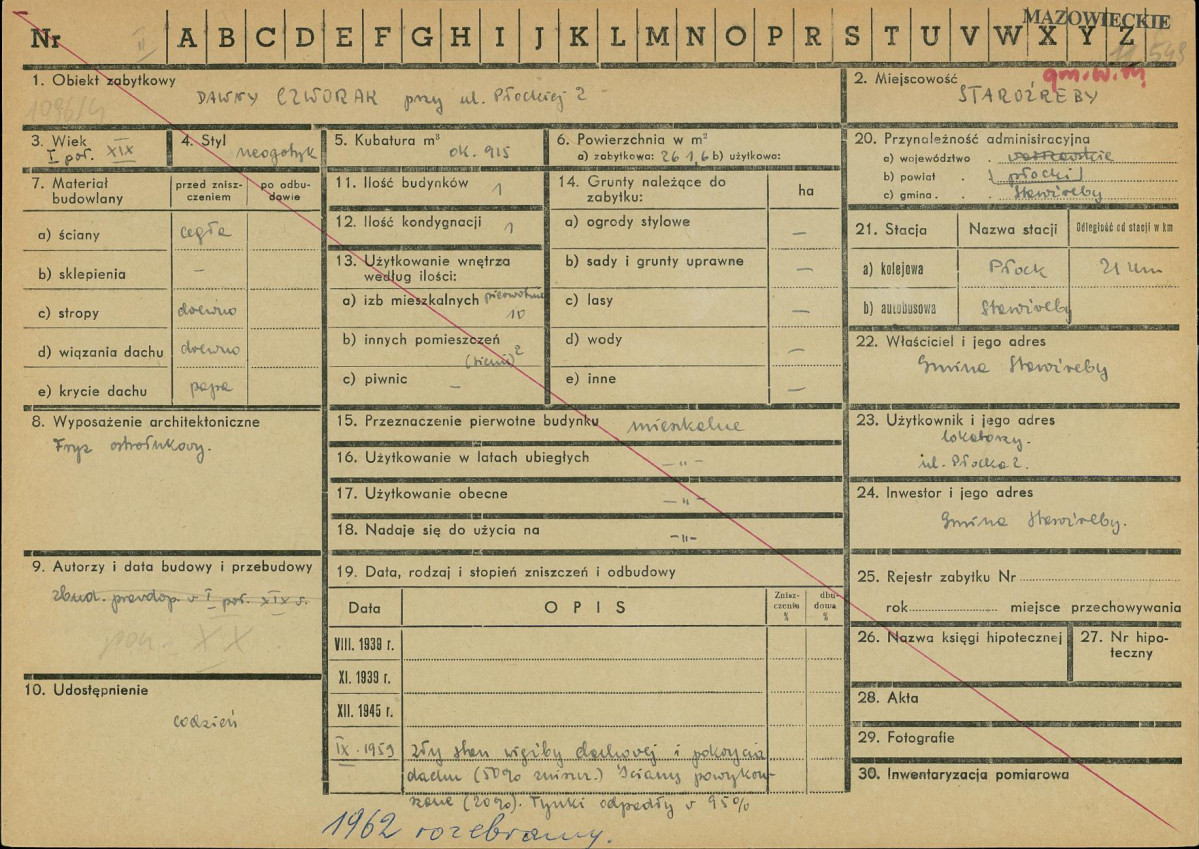 Nr II A B C D E F G H I J K L M N O P R S T U V W X Y Z
MAZOWIECKIE
gm. W. m
1. Obiekt zabytkowy
DAWNY CZWORAK przy ul. Płockiej 2
2. Miejscowość
STAROŹREBY
3. Wiek
I poł. XIX
4. Styl
neogotyk
5. Kubatura m³
ok. 915
6. Powierzchnia w m²
a) zabytkowa: 261,6 b) użytkowa:
7. Materiał budowlany
przed znisz-
czeniem
po odbu-
dowie
a) ściany cegła
b) sklepienia –
c) stropy drewno
d) wiązania dachu drewno
e) krycie dachu papa
8. Wyposażenie architektoniczne
Fryz ostrołukowy.
9. Autorzy i data budowy i przebudowy
zbud. prawdop. w I poł. XIX w.
XX
10. Udostępnienie
codzień
11. Ilość budynków 1
12. Ilość kondygnacji 1
13. Użytkowanie wnętrza
według ilości:
a) izb mieszkalnych pierwotnie
10
b) innych pomieszczeń
(sieni) 2
c) piwnic –
14. Grunty należące do
zabytku:
ha
a) ogrody stylowe –
b) sady i grunty uprawne –
c) lasy –
d) wody –
e) inne –
15. Przeznaczenie pierwotne budynku mieszkalne
16. Użytkowanie w latach ubiegłych –"–
17. Użytkowanie obecne –"–
18. Nadaje się do użycia na –"–
19. Data, rodzaj i stopień zniszczeń i odbudowy
Data
OPIS
Znisz-
czeniu
%
dbu-
dowa
%
VIII. 1939 r.
XI. 1939 r.
XII. 1945 r.
IX. 1959 zły stan więźby dachowej i pokrycia
dachu (50% zniszcz.) Ściany powykru-
szane (20%). Tynki odpadły w 95%
1962 rozebrany.
20. Przynależność administracyjna
a) województwo . warszawskie
b) powiat . płocki
c) gmina . Staroźreby
21. Stacja
Nazwa stacji
Odległość od stacji w km
a) kolejowa Płock 21 km
b) autobusowa Staroźreby
22. Właściciel i jego adres
Gmina Staroźreby
23. Użytkownik i jego adres
lokatorzy.
ul. Płocka 2.
24. Inwestor i jego adres
Gmina Staroźreby.
25. Rejestr zabytku Nr
rok miejsce przechowywania
26. Nazwa księgi hipotecznej
27. Nr hipo-
teczny
28. Akta
29. Fotografie
30. Inwentaryzacja pomiarowa